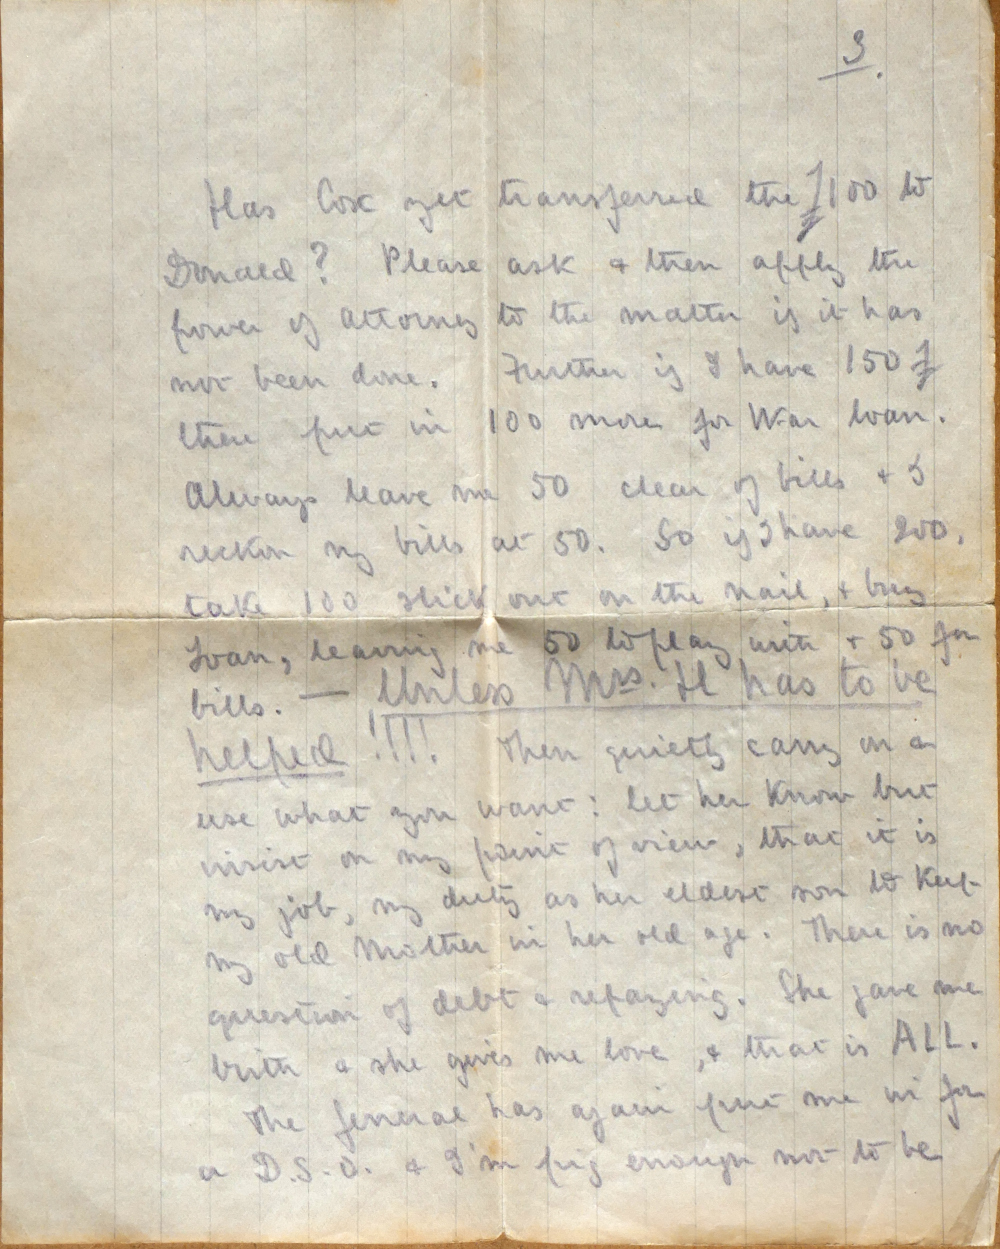 3.
Has Cox yet transferred the £100 to
Donald? Please ask & then apply the
power of attorney to the matter if it has
not been done. Further if I have 150£
there put in 100 more for War Loan.
Always leave me 50 clear of bills &
reckon my bills at 50. So if I have 200,
take 100 slick out on the nail, & buy
Loan, leaving me 50 to play with & 50 for
bills. — Unless Mrs. H has to be
helped !!!! Then quietly carry on &
use what you want: let her know but
insist on my point of view, that it is
my job, my duty as her eldest son to keep
my old Mother in her old age. There is no
question of debt & repaying. She gave me
birth & she gives me love, & that is ALL.
The General has again put me in for
a D.S.O. & I'm pig enough not to be